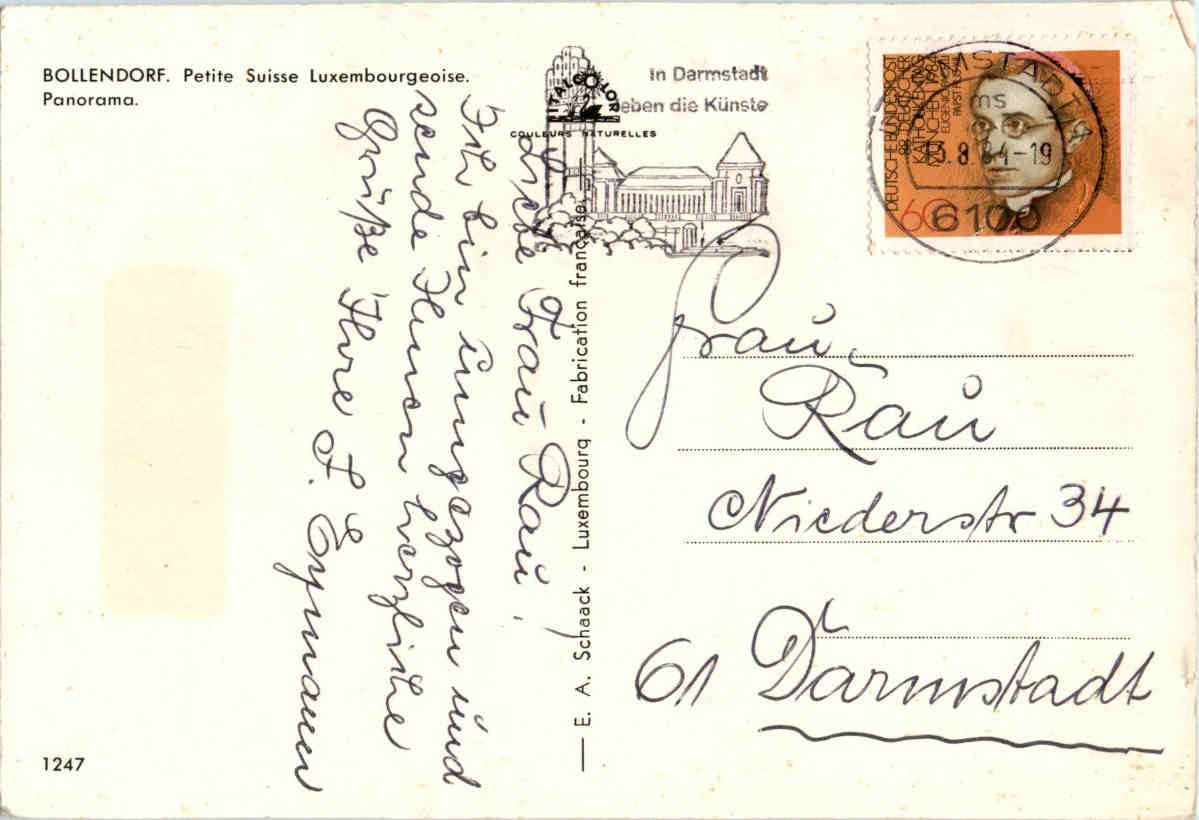 BOLLENDORF. Petite Suisse Luxembourgeoise.
Panorama.
ITALCOLOR
COULEURS NATURELLES
In Darmstadt
leben die Künste
DEUTSCHE BUNDESPOST
88. DEUTSCHER
KATHOLIKENTAG
MÜNCHEN 1984
EUGENIO
PAPST PIUS XII
60
DARMSTADT
ms
13.8.84-19
6100
Liebe Frau Rau,
Ich bin umgezogen und
sende Ihnen herzliche
Grüße Ihre F. Eymann
E. A. Schaack - Luxembourg - Fabrication française
Frau
Rau
Niederstr 34
61 Darmstadt
1247